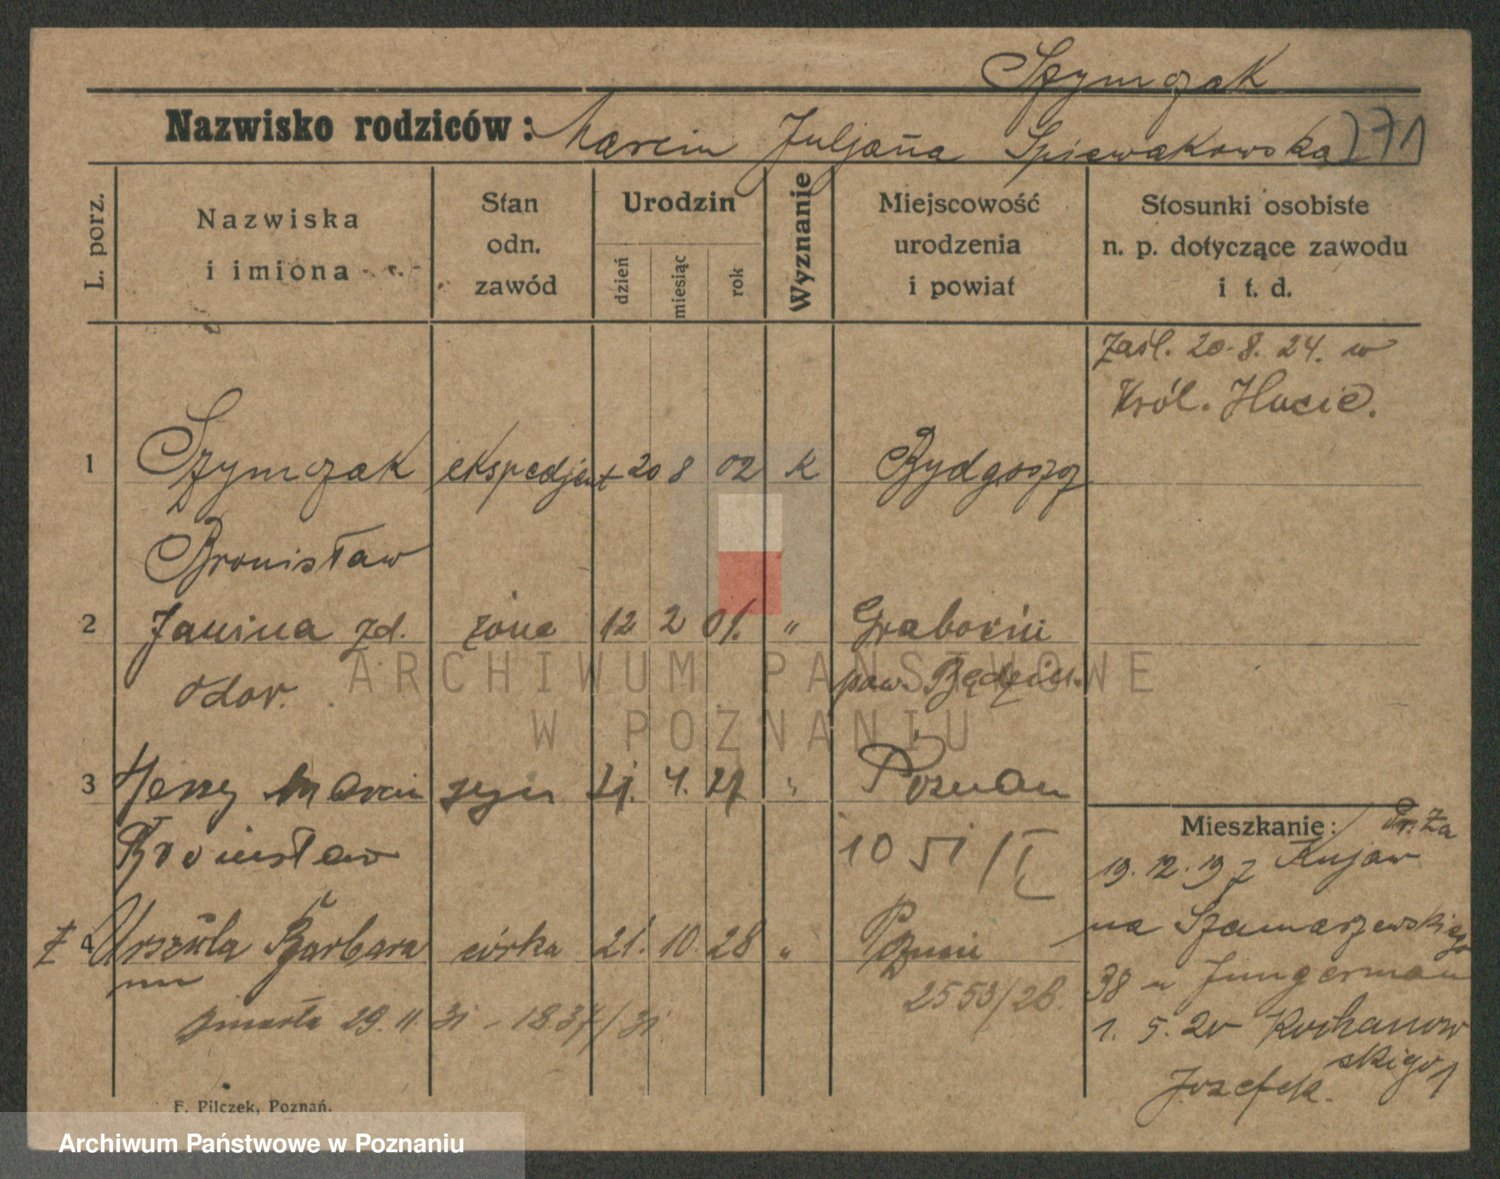 Szymczak
Nazwisko rodziców: Marcin Juljana Śpiewakowska 271
L. porz.
Nazwiska
i imiona
Stan
odn.
zawód
Urodzin
dzień
miesiąc
rok
Wyznanie
Miejscowość
urodzenia
i powiat
Stosunki osobiste
n. p. dotyczące zawodu
i t. d.
Zaśl. 20.8.24. w
Król. Hucie.
1 Szymczak ekspedjent 20 8 02 K Bydgoszcz
Bronisław
2 Janina zd. żona 12 2 01. "
odor. pow. Będzin.
3 Jerzy Marcin syn 4. 27 " Poznań
Bronisław
4 Urszula Barbara córka 21. 10. 28 "
2553/28.
zmarła 29.11.31 - 1837/31
Mieszkanie:
19.12.19 z Kujaw
na Szamarzewskiego
38 u Jungerman
1.5.20 Kochanow
skiego 1
Józefek.
F. Pilczek, Poznań.
ARCHIWUM PAŃSTWOWE
W POZNANIU
Archiwum Państwowe w Poznaniu